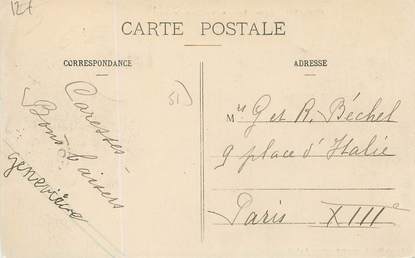 12f
CARTE POSTALE
CORRESPONDANCE
ADRESSE
Caresses -
Bons baisers
geneviève
51
Mrs G et R. Béchel
9 place d'Italie
Paris XIIIe